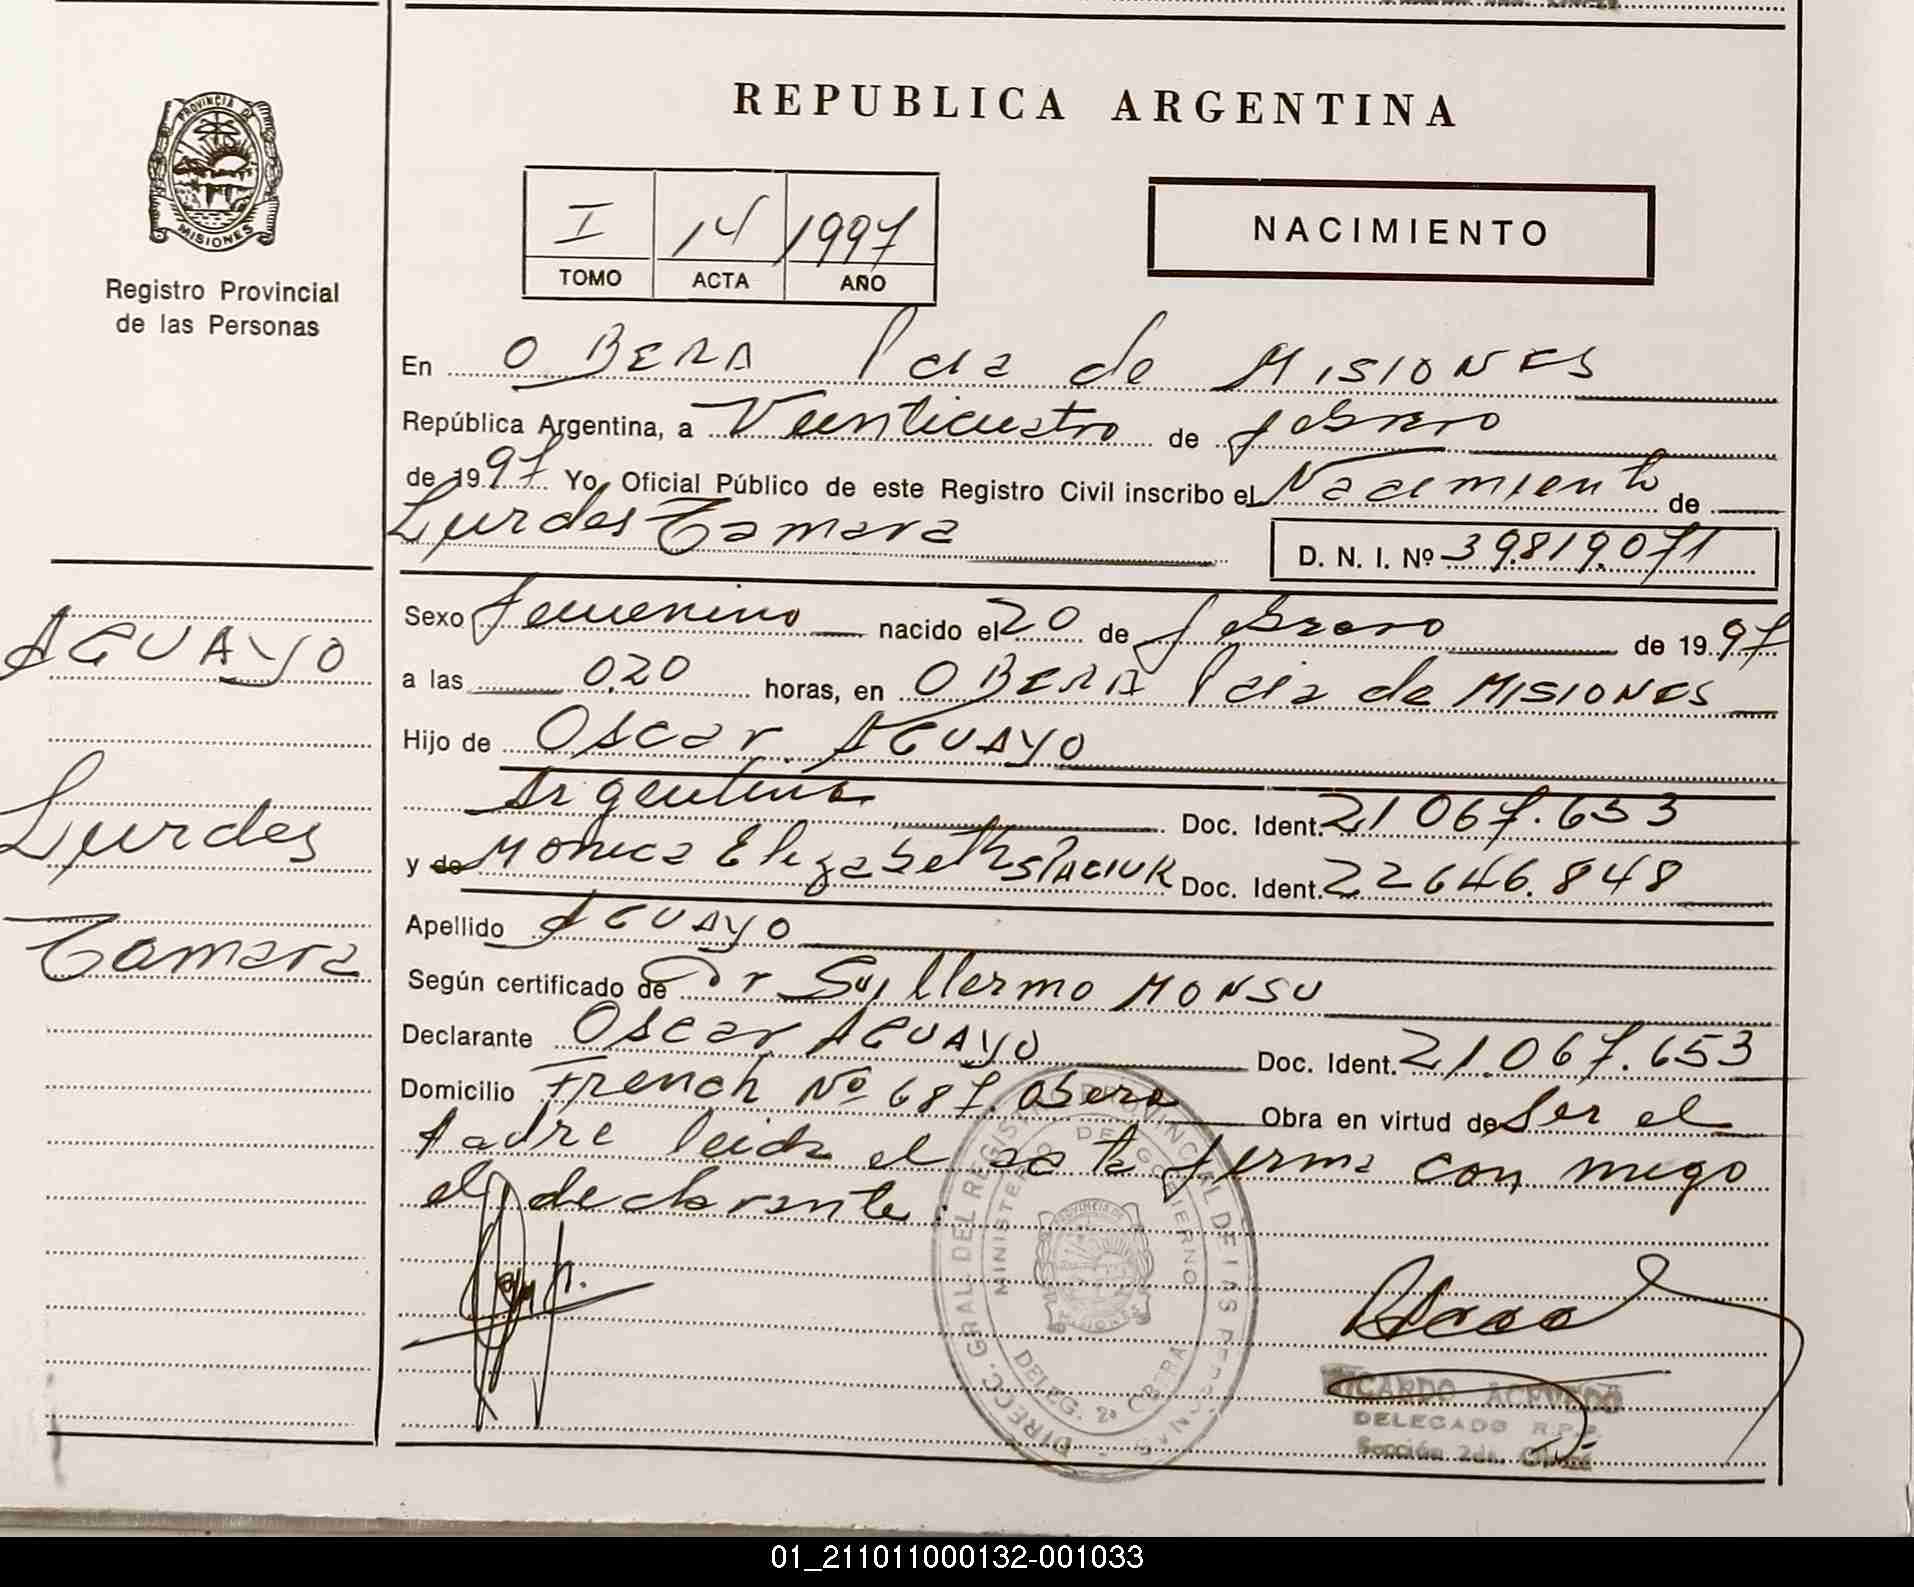 REPUBLICA ARGENTINA
PROVINCIA DE
MISIONES
Registro Provincial
de las Personas
I 14 1997
TOMO ACTA AÑO
NACIMIENTO
En OBERA Pcia de MISIONES
República Argentina, a Veinticuatro de febrero
de 1997 Yo, Oficial Público de este Registro Civil inscribo el Nacimiento de
Lurdes Tamara D. N. I. Nº 39.819.071
AGUAYO
Lurdes
Tamara
Sexo femenino nacido el 20 de febrero de 1997
a las 0,20 horas, en OBERA Pcia de MISIONES
Hijo de Oscar AGUAYO
Argentina Doc. Ident. 21 067.653
y de Monica Elizabeth SLACIUK Doc. Ident. 22646.848
Apellido AGUAYO
Según certificado de Dr Guillermo MONSU
Declarante Oscar AGUAYO Doc. Ident. 21.067.653
Domicilio French Nº 687. Obera Obra en virtud de ser el
padre leida el acta firma con migo
el declarante.
DIRECC. GRAL. DEL REGISTRO PROVINCIAL DE LAS PERSONAS
MINISTERIO DE GOBIERNO
PROVINCIA DE
MISIONES
DELEG. 2a OBERA
RICARDO ACEVEDO
DELEGADO R.P.P.
Sección 2da.
01_211011000132-001033